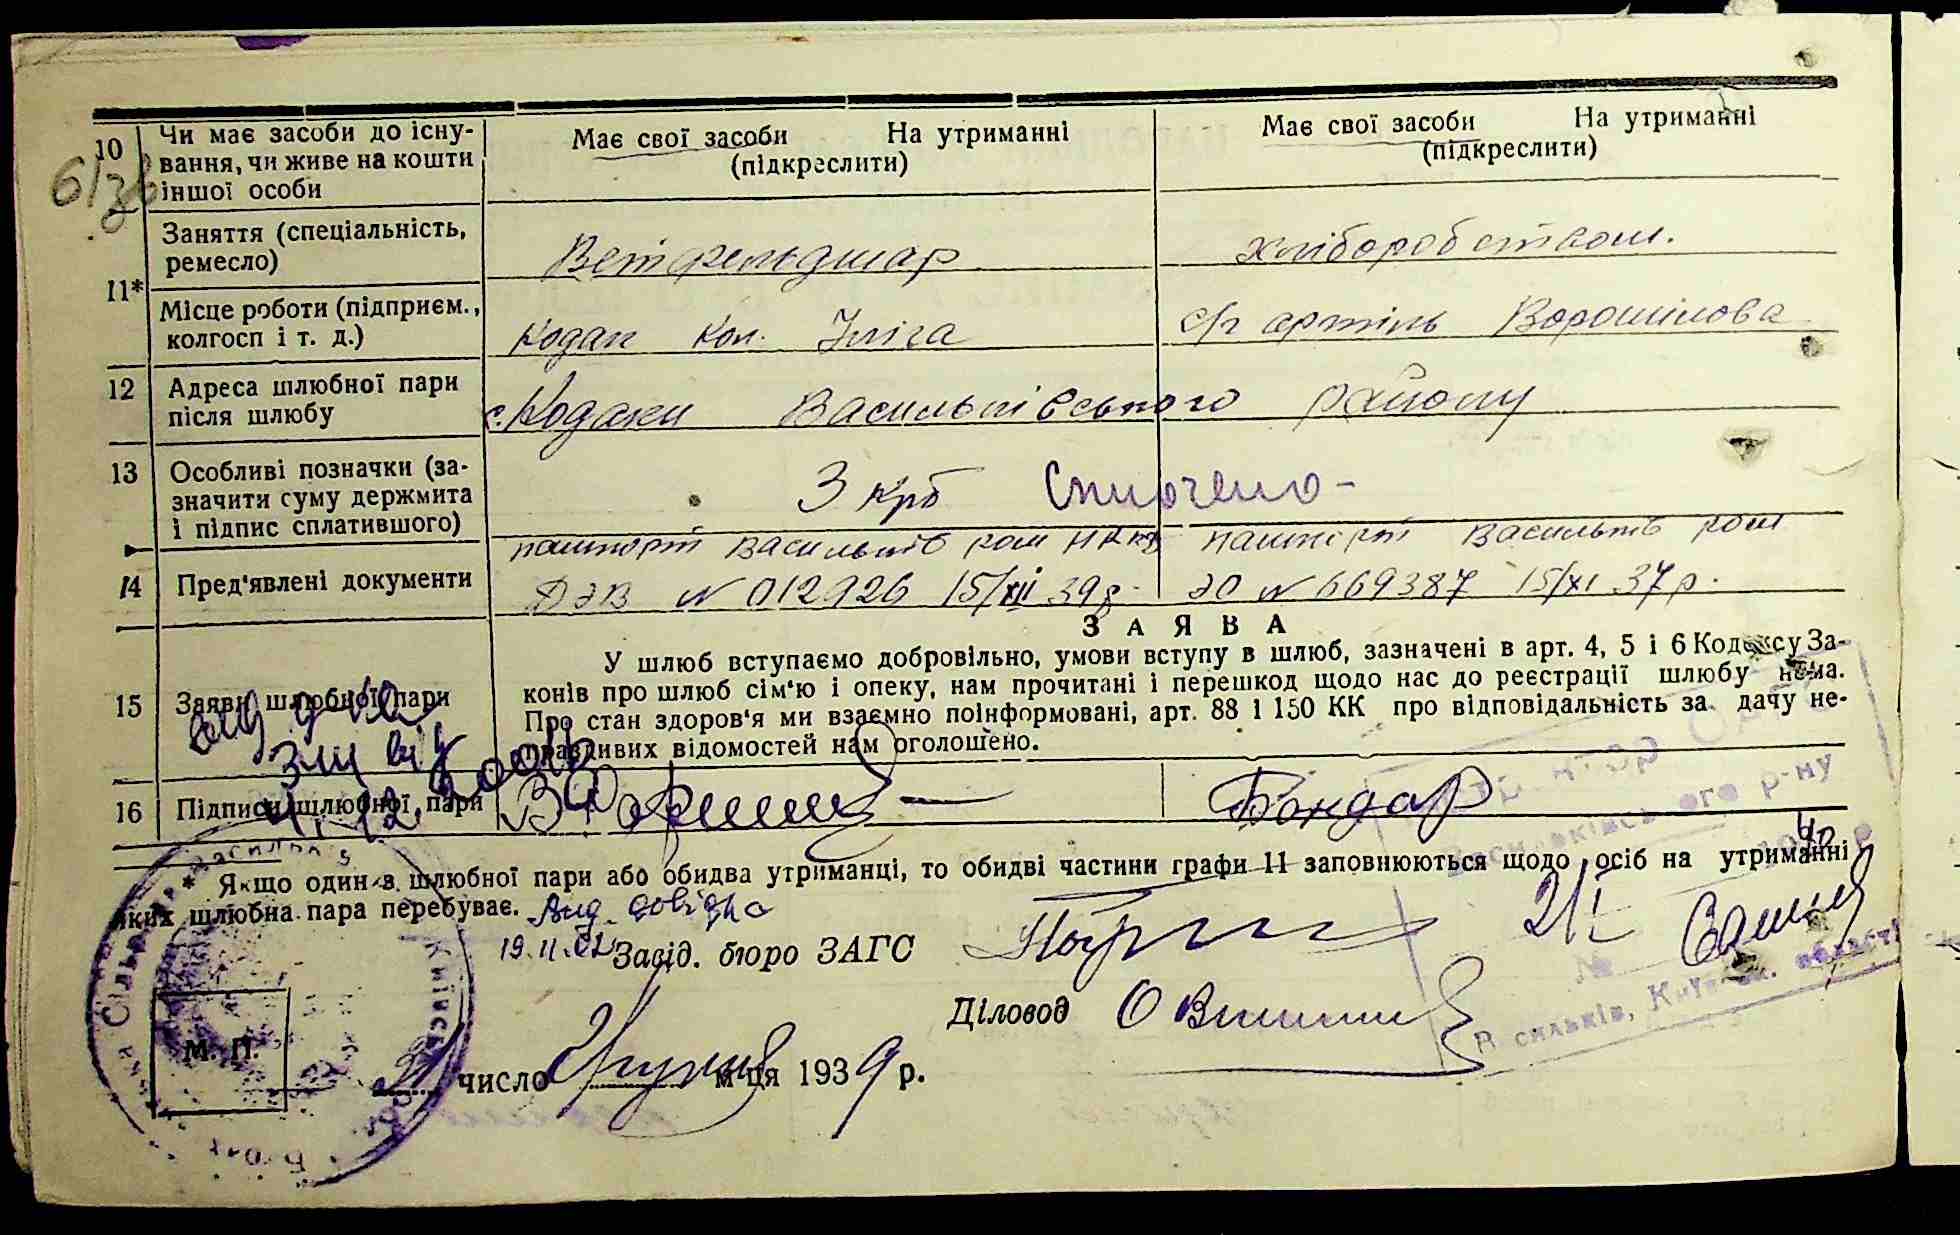 10 Чи має засоби до існу-
вання, чи живе на кошти
іншої особи
Має свої засоби На утриманні
(підкреслити)
Має свої засоби На утриманні
(підкреслити)
11* Заняття (спеціальність,
ремесло)
Ветфельдшар
хліборобством.
Місце роботи (підприєм.,
колгосп і т. д.)
Кодак кол.
с/г артіль Ворошілова
12 Адреса шлюбної пари
після шлюбу
с. Кодаки Васильківського району
13 Особливі позначки (за-
значити суму держмита
і підпис сплатившого)
3 крб Сплочено-
14 Пред'явлені документи
пашпорт Васильків
№ 012926 15/XII 39р.
пашпорт Васильків
№ 669387 15/XI 37р.
15 Заяви шлюбної пари
ЗАЯВА
У шлюб вступаємо добровільно, умови вступу в шлюб, зазначені в арт. 4, 5 і 6 Кодексу За-
конів про шлюб сім'ю і опеку, нам прочитані і перешкод щодо нас до реєстрації шлюбу нема.
Про стан здоров'я ми взаємно поінформовані, арт. 88 і 150 КК про відповідальність за дачу не-
правдивих відомостей нам оголошено.
16 Підписи шлюбної пари
Бондар
* Якщо один з шлюбної пари або обидва утриманці, то обидві частини графи 11 заповнюються щодо осіб на утриманні
яких шлюбна пара перебуває. Вид. довідка
19.11.
Завід. бюро ЗАГС
Діловод
М. П.
31 число Грудня м-ця 1939 р.
Васильківського р-ну
№
Васильків, Київськ. області